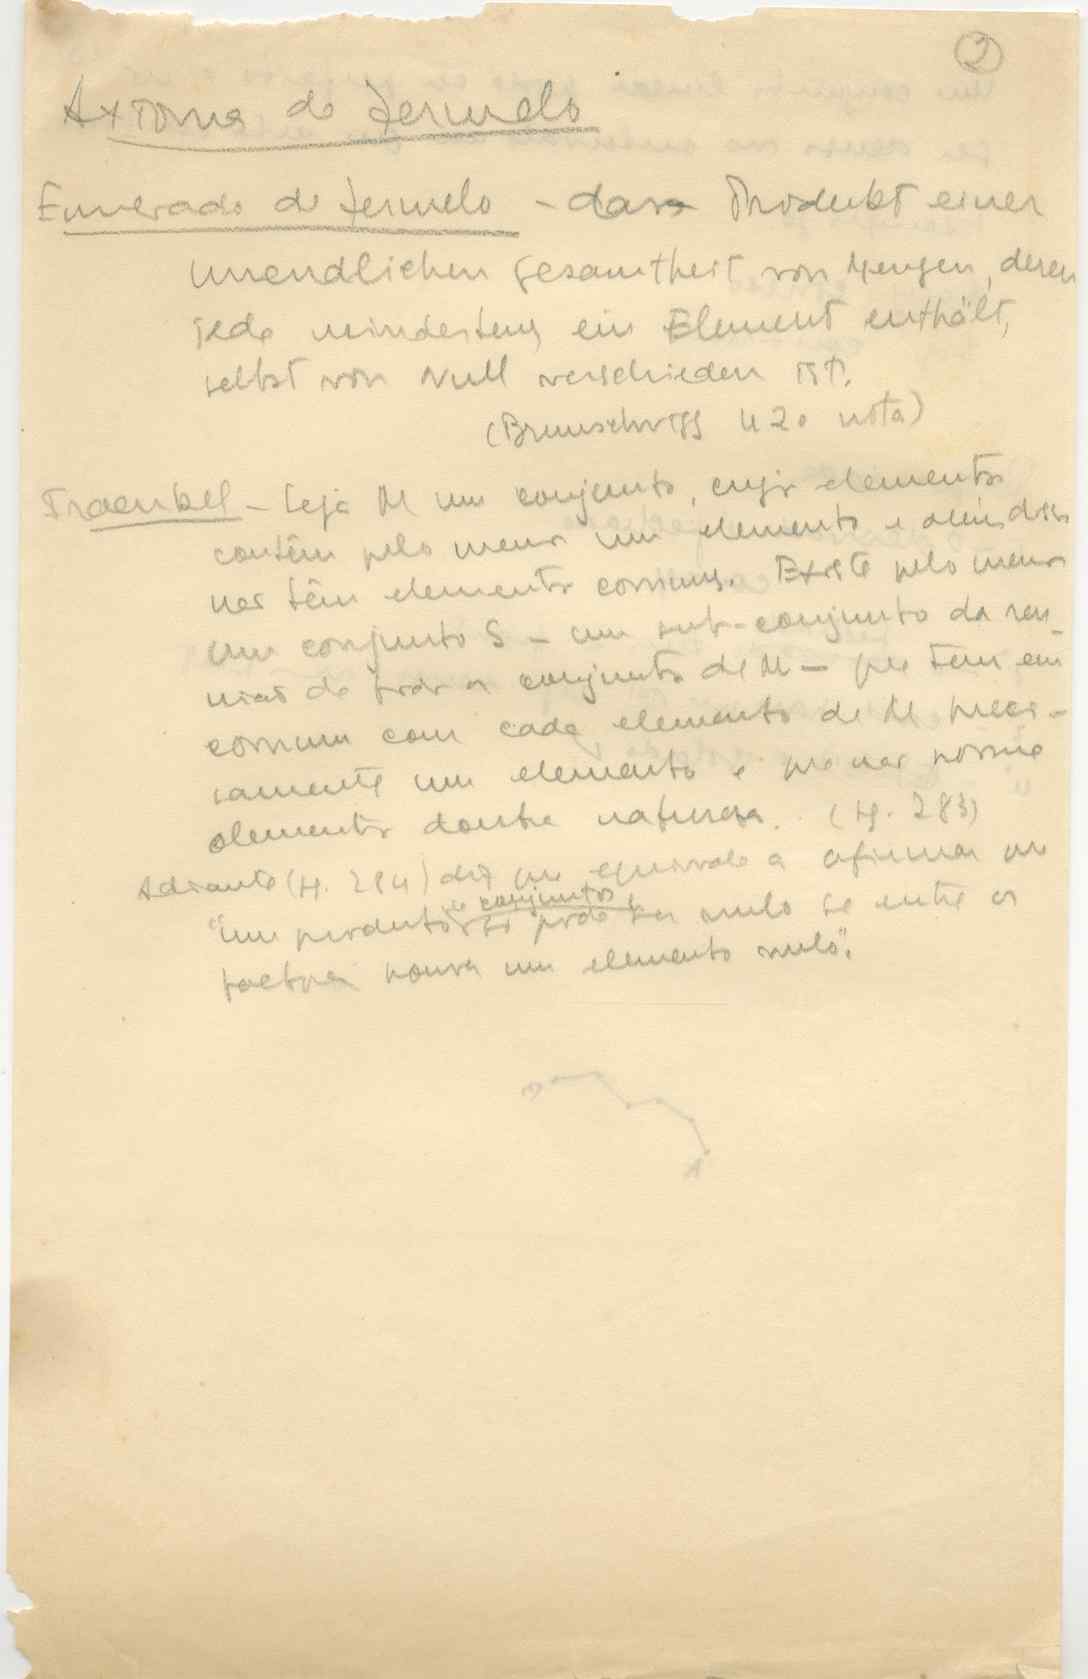 2
Axioma de Zermelo
Enunciado de Zermelo - dass Produkt einer
unendlichen Gesamtheit von Mengen, deren
jede mindestens ein Element enthält,
selbst von Null verschieden ist.
(Brunschvicg 420 nota)
Fraenkel - Seja M um conjunto, cujos elementos
contêm pelo menos um elemento e além disso
não têm elementos comuns. Existe pelo menos
um conjunto S - um sub-conjunto da reu-
nião de todos os conjuntos de M - que tem em
comum com cada elemento de M preci-
samente um elemento e que não possue
elementos doutra natureza. (pg. 283)
Adiante (pg. 284) diz que equivale a afirmar que
de conjuntos
"um produto só pode ser nulo se entre os
factores houver um elemento nulo".